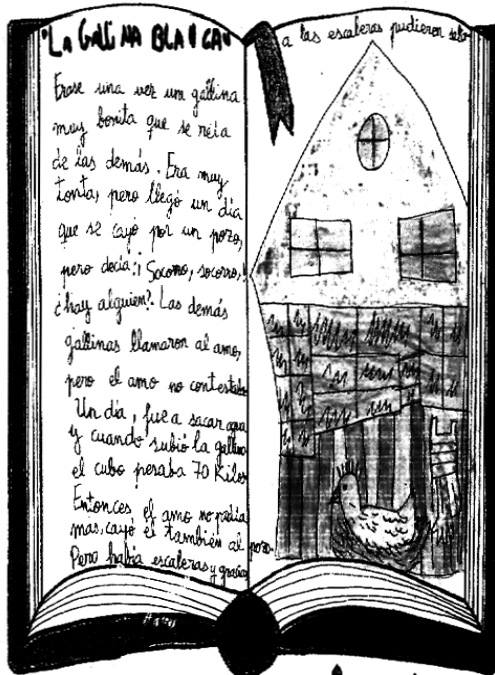 "LA GALLINA BLANCA"
Erase una vez una gallina
muy bonita que se reía
de las demás. Era muy
tonta, pero llegó un día
que se cayó por un pozo,
pero decía: ¡Socorro, socorro,!
¿hay alguien?. Las demás
gallinas llamaron al amo,
pero el amo no contestaba
Un día, fue a sacar agua
y cuando subió la gallina
el cubo pesaba 70 Kilos
Entonces el amo no podía
mas, cayó él también al pozo.
Pero había escaleras y gracias
a las escaleras pudieron salir